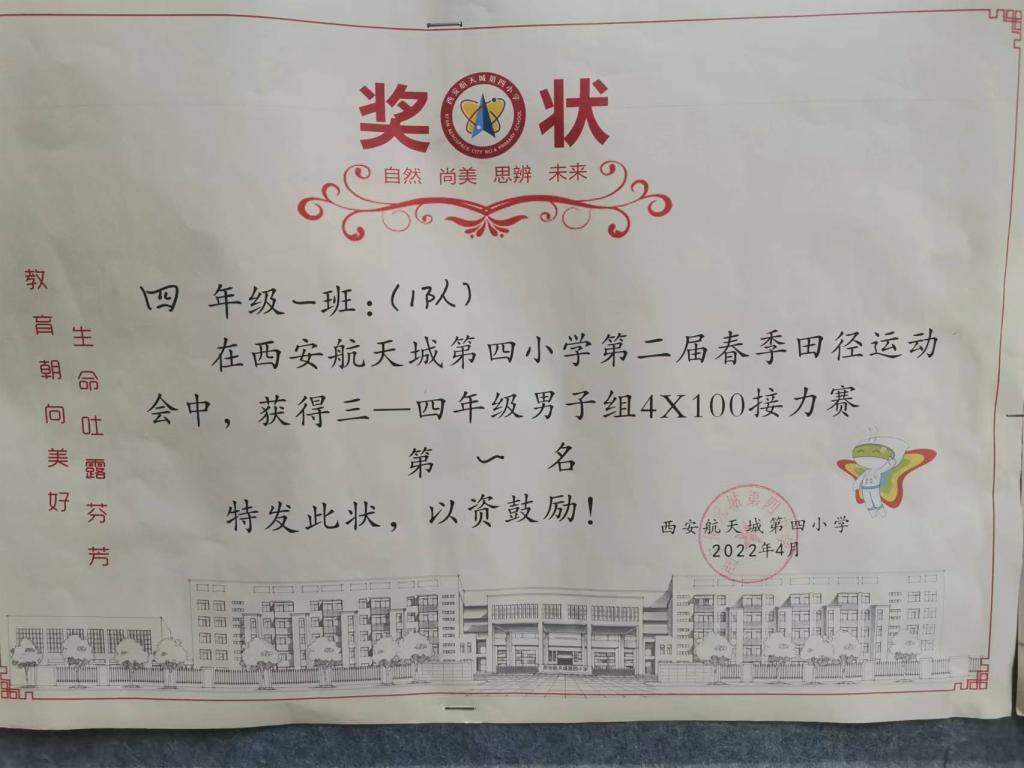 奖 状
西安航天城第四小学
XI'AN AEROSPACE CITY NO.4 PRIMARY SCHOOL
自然 尚美 思辨 未来
教育朝向美好
生命吐露芬芳
四 年级一班：（1队）
在西安航天城第四小学第二届春季田径运动
会中，获得三—四年级男子组4X100接力赛
第 一 名
特发此状，以资鼓励！
西安航天城第四小学
2022年4月